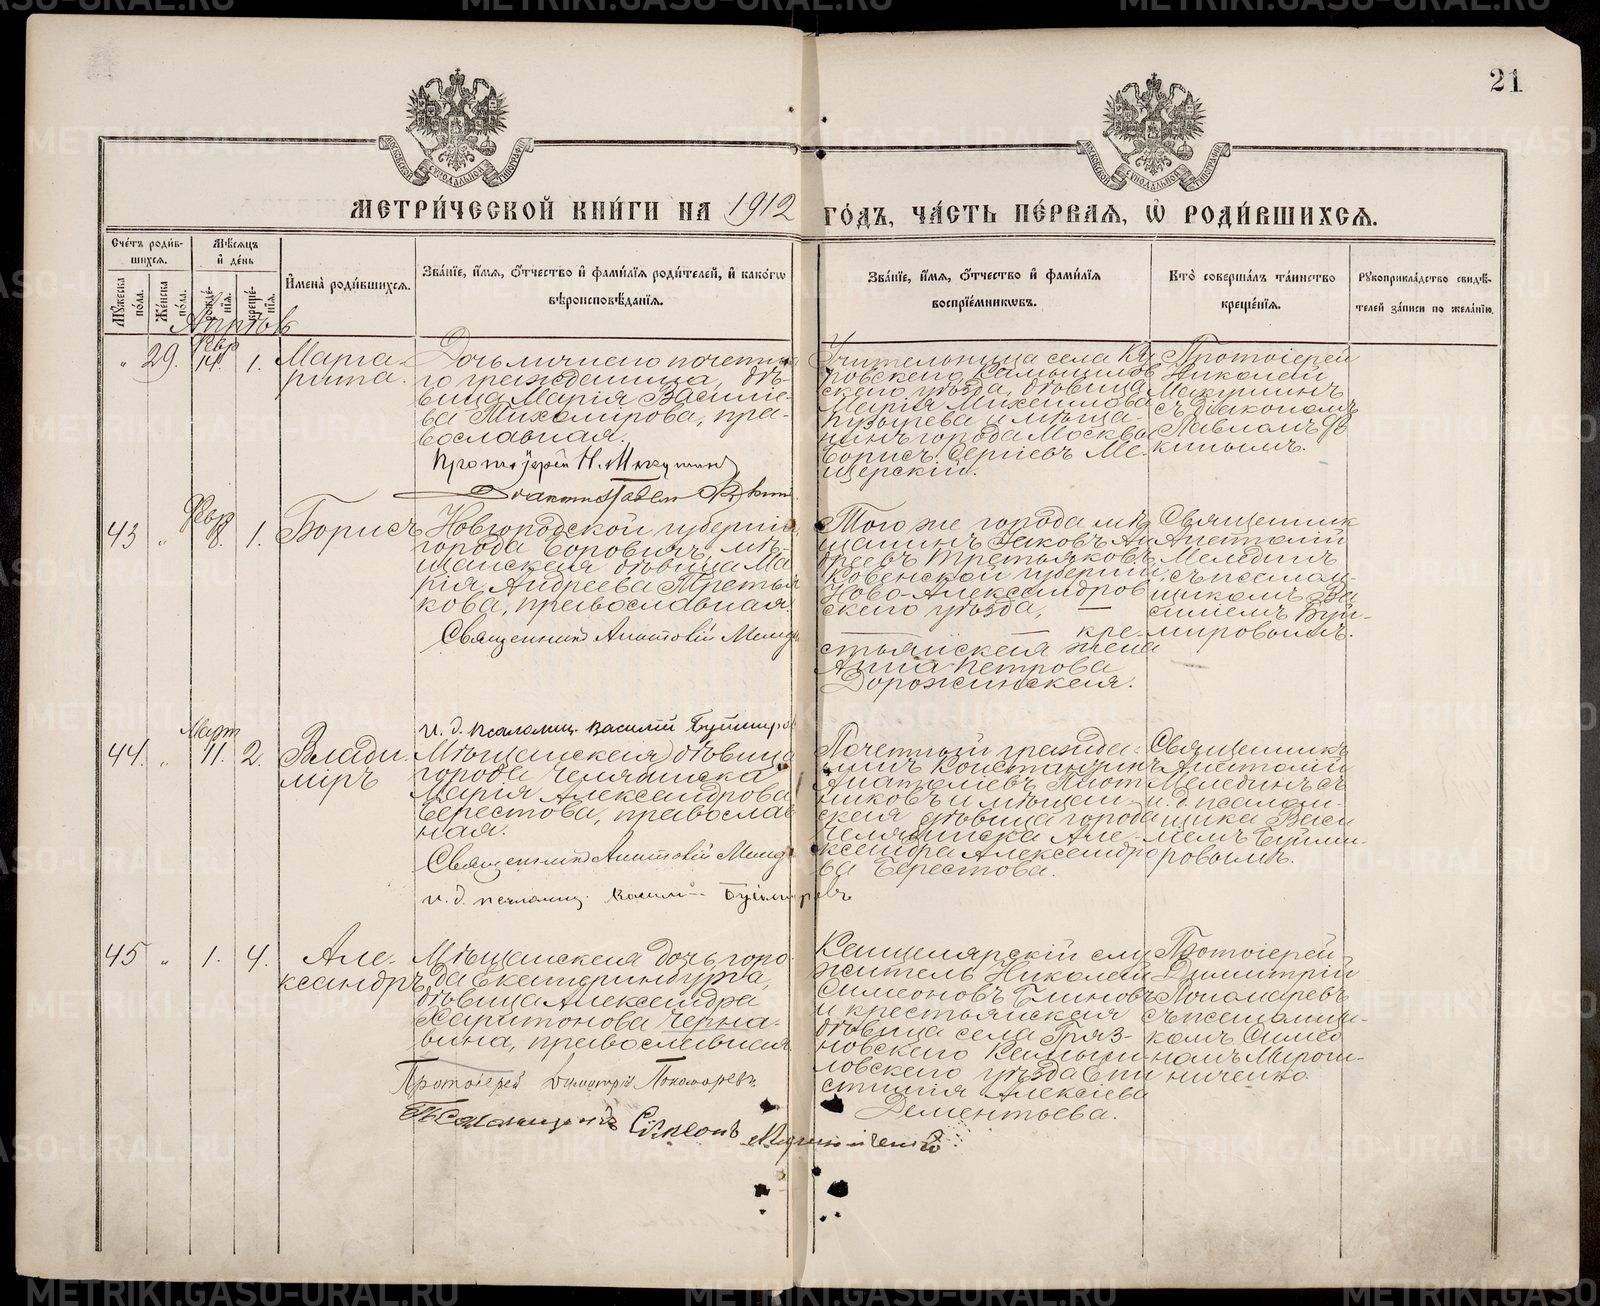 21
МЕТРИ́ЧЕСКОЙ КНИ́ГИ НА 1912 ГО́ДЪ, ЧА́СТЬ ПЕ́РВАЯ, Ѡ҆ РОДИ́ВШИХСЯ.
Сче́тъ роди́вшихся.
Мѣ́сяцъ и҆ де́нь
Мꙋ́жеска по́ла.
Же́нска по́ла.
рожде́нїя.
креще́нїя.
И҆мена̀ роди́вшихся.
Зва́нїе, и҆́мя, ѻ҆́тчество и҆ фами́лїя роди́телей, и҆ како́гѡ
вѣроисповѣ́данїя.
Зва́нїе, и҆́мя, ѻ҆́тчество и҆ фами́лїя
воспрїе́мникѡвъ.
Кто̀ соверша́лъ та́инство
креще́нїя.
Рꙋкоприкла́дство свидѣ́-
телей за́писи по жела́нїю.
Апрѣль
„ 29. Февр 14. 1.
Марга-
рита.
Дочь личнаго почетна
го гражданина, дѣ-
вица Марія Василье-
ва Тихомирова, пра-
вославная.
Протоіерей Н. Макушин
Диакон Павел
Учительница села Ки
ровскаго, Камышлов
скаго уѣзда, дѣвица
Марія Михаилова
Пузырева и мѣща-
нинъ города Москвы
Борисъ Сергіевъ Ме-
щерскій.
Протоіерей
Николай
Макушинъ
съ діакономъ
Павломъ
43 „ Февр 8. 1.
Борисъ
Новгородской губерніи
города Боровичъ, мѣ-
щанская дѣвица Ма
рія Андреева Третья
кова, православная.
Священникъ Анатолій Меледи
и. д. псаломщ. Василій Буймиров
Того же города мѣ
щанинъ Іаковъ Ан
дреевъ Третьяковъ,
Ковенской губерніи
Ново-Александров
скаго уѣзда, —
— — кре-
стьянская жена
Анна Петрова
Дорожинская.
Священник
Анатолій
Меледин
съ псалом-
щиком Ва
силіемъ Буй-
мировымъ.
44. „ Март 11. 2.
Влади-
міръ
Мѣщанская дѣвица
города Челябинска
Марія Александрова
Берестова, православ
ная.
Священникъ Анатолій Меледи
и. д. псаломщ. Василій Буймировъ
Почетный гражда-
нинъ Константинъ
Анатоліевъ Плот
никовъ и мѣщан-
ская дѣвица города
Челябинска Але-
ксандра Александро
ва Берестова.
Священникъ
Анатолій
Мелединъ съ
и. д. псалом-
щика Васи
ліемъ Буйми-
ровымъ.
45 „ 1. 4.
Але-
ксандръ
Мѣщанская дочь горо-
да Екатеринбурга,
дѣвица Александра
Харитонова Черна-
вина, православная
Протоіерей Димитрій Пономаревъ
Псаломщикъ Сімеонъ Мирошниченко
Канцелярскій слу
житель Николай
Симеоновъ Блиновъ
и крестьянская
дѣвица села Гряз-
новскаго Камыш-
ловскаго уѣзда Епи
стимія Алексіева
Дементьева.
Протоіерей
Димитрій
Пономаревъ
съ псаломщи-
комъ Симео
номъ Мирош-
ниченко.
METRIKI.GASO-URAL.RU